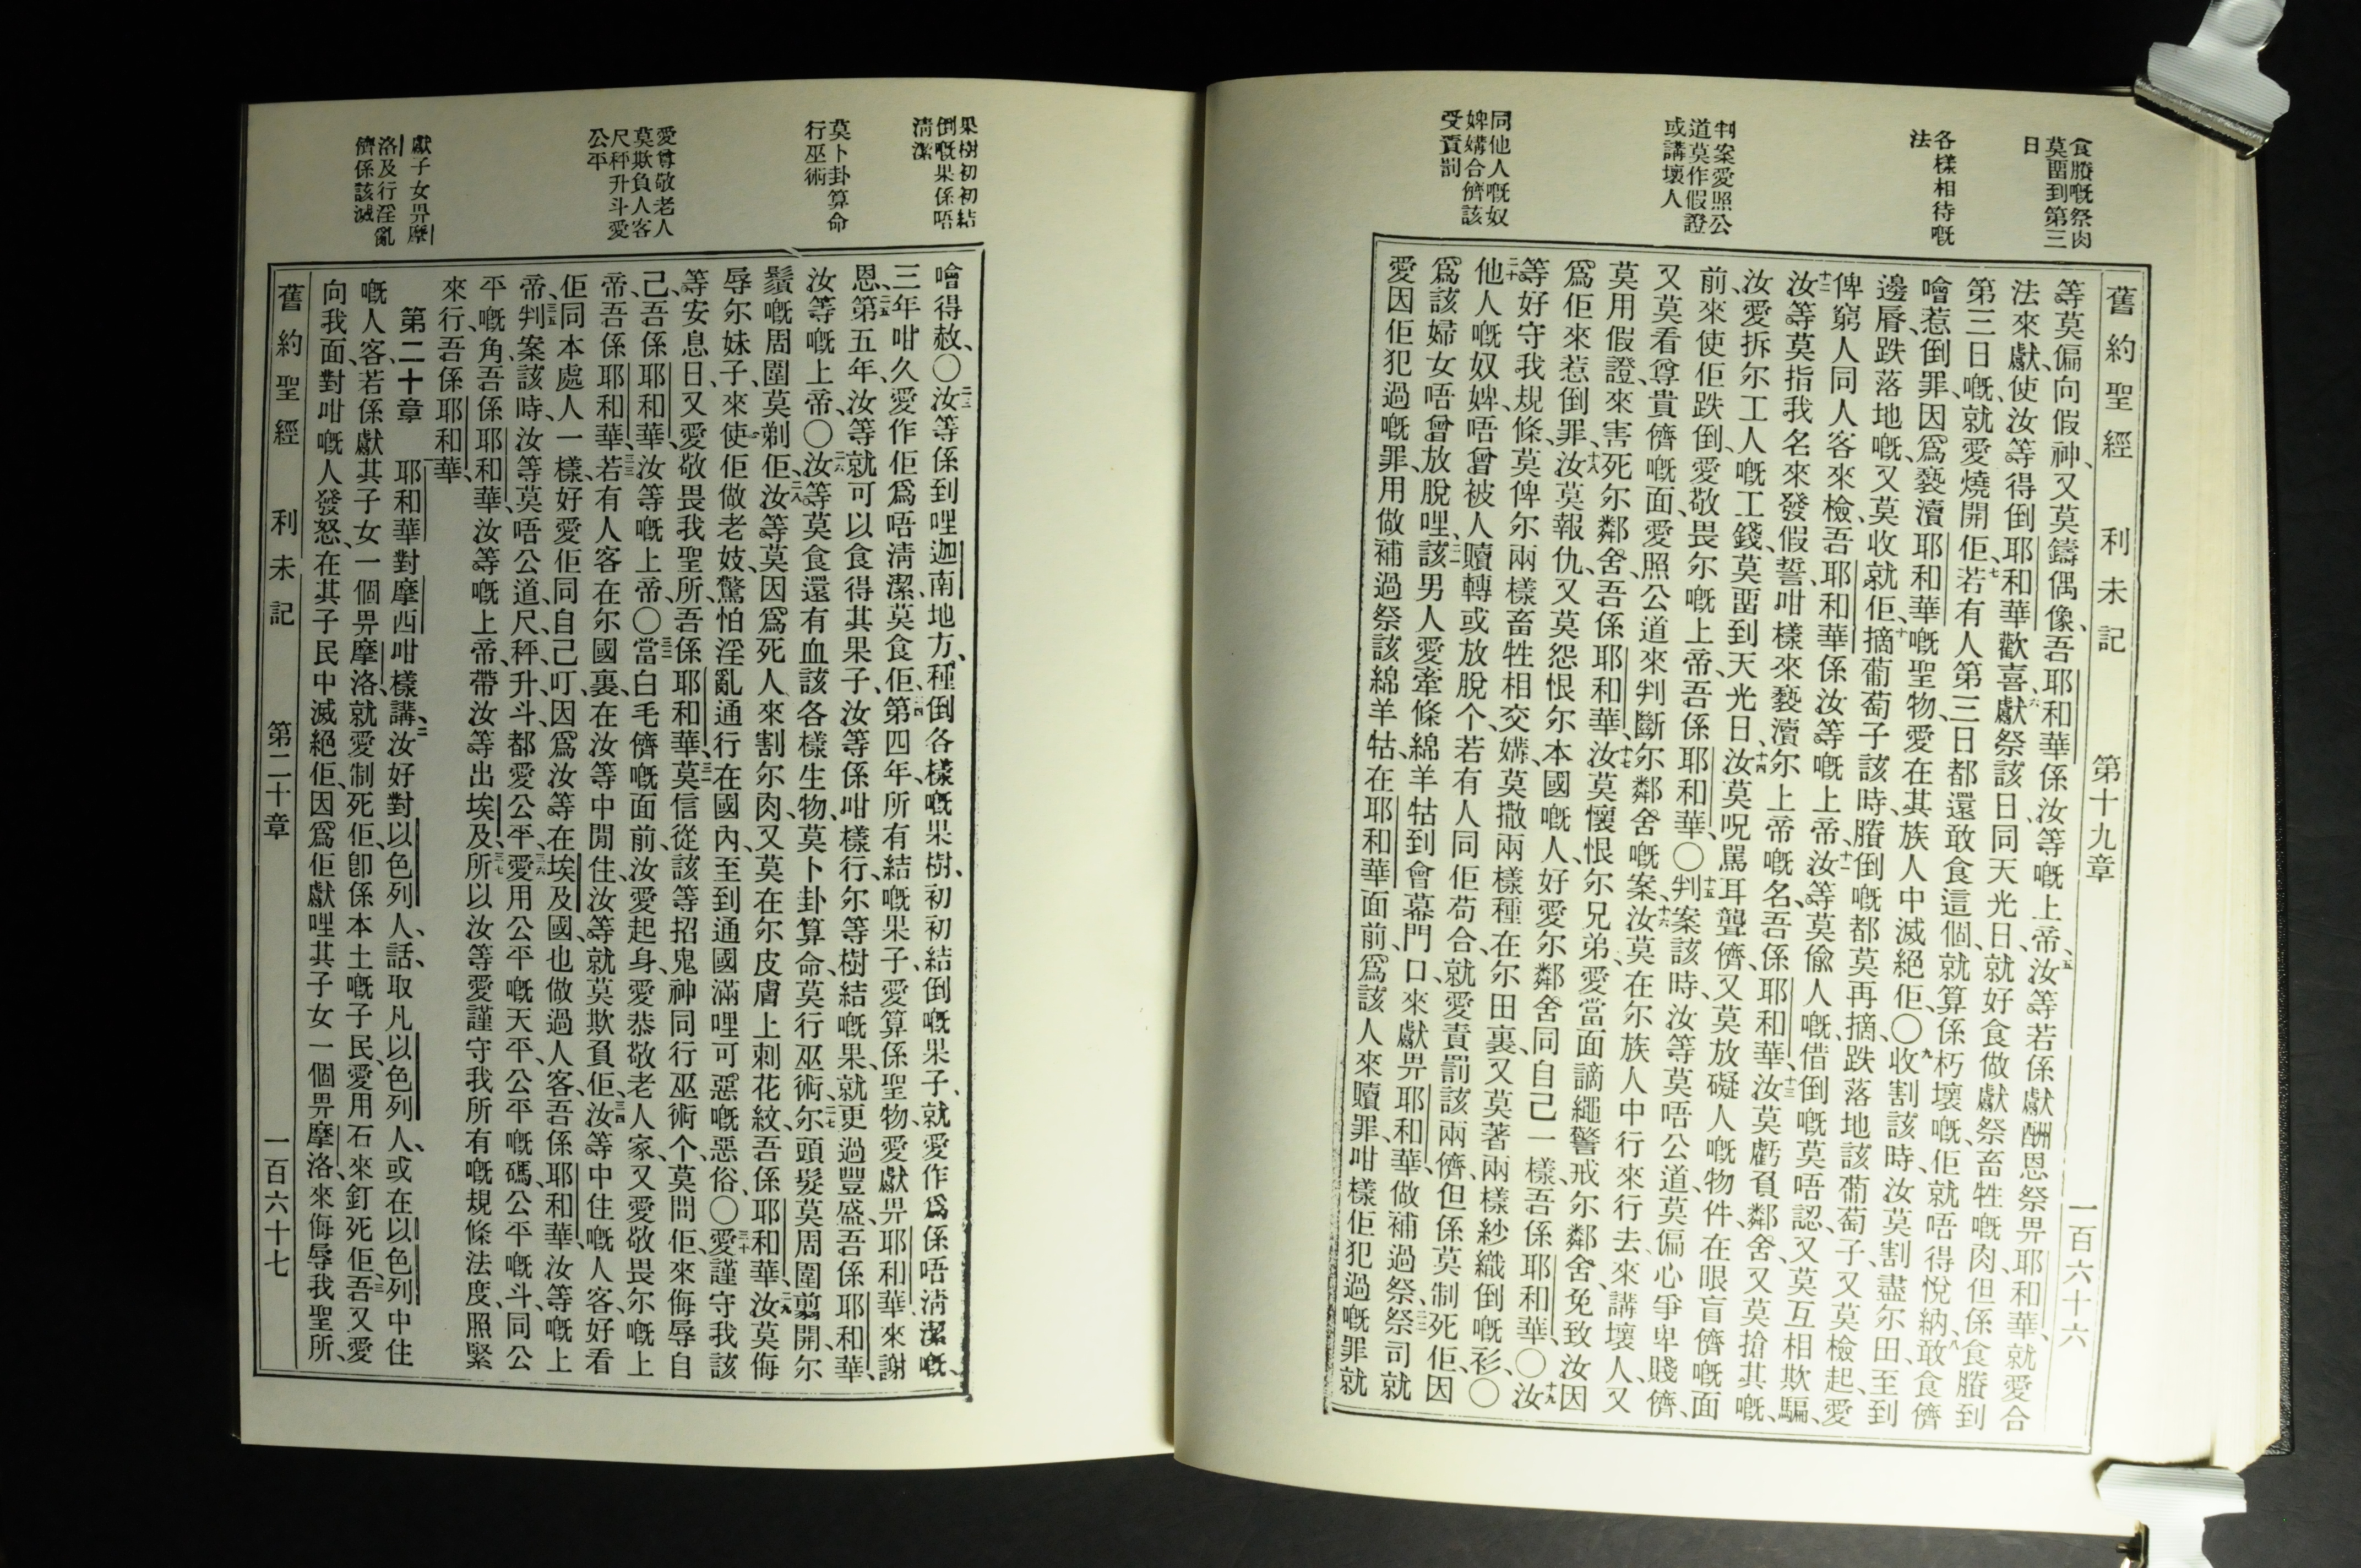 食賸嘅祭肉
莫畱到第三
日
各樣相待嘅
法
判案愛照公
道莫作假證
或講壞人
同他人嘅奴
婢媾合儕該
受責罰
舊約聖經 利未記 第十九章 一百六十六
等莫偏向假神、又莫鑄偶像、吾耶和華係汝等嘅上帝、五汝等若係獻酬恩祭畀耶和華、就愛合
法來獻、使汝等得倒耶和華歡喜、六獻祭該日同天光日、就好食做獻祭畜牲嘅肉、但係食賸到
第三日嘅、就愛燒開佢、七若有人第三日都還敢食這個、就算係朽壞嘅、佢就唔得悅納、八敢食儕
噲惹倒罪、因爲褻瀆耶和華嘅聖物、愛在其族人中滅絕佢、〇九收割該時、汝莫割盡尔田、至到
邊脣跌落地嘅、又莫收就佢、十摘葡萄子該時、賸倒嘅都莫再摘、跌落地該葡萄子、又莫檢起、愛
俾窮人同人客來檢、吾耶和華係汝等嘅上帝、十一汝等莫偸人嘅、借倒嘅莫唔認、又莫互相欺騙、
十二汝等莫指我名來發假誓、咁樣來褻瀆尔上帝嘅名、吾係耶和華、十三汝莫虧負鄰舍、又莫搶其嘅、
汝愛拆尔工人嘅工錢、莫畱到天光日、十四汝莫呪駡耳聾儕、又莫放礙人嘅物件、在眼盲儕嘅面
前、來使佢跌倒、愛敬畏尔嘅上帝、吾係耶和華、〇十五判案該時、汝等莫唔公道、莫偏心爭卑賤儕、
又莫看尊貴儕嘅面、愛照公道來判斷尔鄰舍嘅案、十六汝莫在尔族人中行來行去、來講壞人、又
莫用假證來害死尔鄰舍、吾係耶和華、十七汝莫懷恨尔兄弟、愛當面謫繩警戒尔鄰舍、免致汝因
爲佢來惹倒罪、十八汝莫報仇、又莫怨恨尔本國嘅人、好愛尔鄰舍同自己一樣、吾係耶和華、〇十九汝
等好守我規條、莫俾尔兩樣畜牲相交媾、莫撒兩樣種在尔田裏、又莫著兩樣紗織倒嘅衫、〇
二十他人嘅奴婢、唔曾被人贖轉或放脫个、若有人同佢苟合、就愛責罰該兩儕、但係莫制死佢、因
爲該婦女唔曾放脫哩、二一該男人愛牽條綿羊牯到會幕門口、來獻畀耶和華、做補過祭、二二祭司就
愛因佢犯過嘅罪、用做補過祭該綿羊牯在耶和華面前、爲該人來贖罪、咁樣佢犯過嘅罪就
果樹初初結
倒嘅果係唔
淸潔
莫卜卦算命
行巫術
愛尊敬老人
莫欺負人客
尺秤升斗愛
公平
獻子女畀摩
洛及行淫亂
儕係該滅
噲得赦、〇二三汝等係到哩迦南地方、種倒各樣嘅果樹、初初結倒嘅果子、就愛作爲係唔淸潔嘅、
三年咁久愛作佢爲唔淸潔、莫食佢、二四第四年、所有結嘅果子、愛算係聖物、愛獻畀耶和華來謝
恩、二五第五年、汝等就可以食得其果子、汝等係咁樣行、尔等樹結嘅果、就更過豐盛、吾係耶和華、
汝等嘅上帝、〇二六汝等莫食還有血該各樣生物、莫卜卦算命、莫行巫術、二七尔頭髮莫周圍剪開、尔
鬚嘅周圍莫剃佢、二八汝等莫因爲死人來割尔肉、又莫在尔皮膚上刺花紋、吾係耶和華、二九汝莫侮
辱尔妹子、來使佢做老妓、驚怕淫亂通行在國內、至到通國滿哩可惡嘅惡俗、〇三十愛謹守我該
等安息日、又愛敬畏我聖所、吾係耶和華、三一莫信從該等招鬼神同行巫術个、莫問佢、來侮辱自
己、吾係耶和華、汝等嘅上帝、〇三二當白毛儕嘅面前、汝愛起身、愛恭敬老人家、又愛敬畏尔嘅上
帝、吾係耶和華、三三若有人客在尔國裏、在汝等中閒住、汝等就莫欺負佢、三四汝等中住嘅人客、好看
佢同本處人一樣、好愛佢同自己叮、因爲汝等在埃及國、也做過人客、吾係耶和華、汝等嘅上
帝、三五判案該時、汝等莫唔公道、尺、秤、升、斗、都愛公平、三六愛用公平嘅天平、公平嘅碼、公平嘅斗、同公
平嘅角、吾係耶和華、汝等嘅上帝、帶汝等出埃及、三七所以汝等愛謹守我所有嘅規條法度、照緊
來行、吾係耶和華、
第二十章 耶和華對摩西咁樣講、二汝好對以色列人話、取凡以色列人、或在以色列中住
嘅人客、若係獻其子女一個畀摩洛、就愛制死佢、卽係本土嘅子民、愛用石來釘死佢、三吾又愛
向我面、對咁嘅人發怒、在其子民中滅絕佢、因爲佢獻哩其子女一個畀摩洛、來侮辱我聖所、
舊約聖經 利未記 第二十章 一百六十七